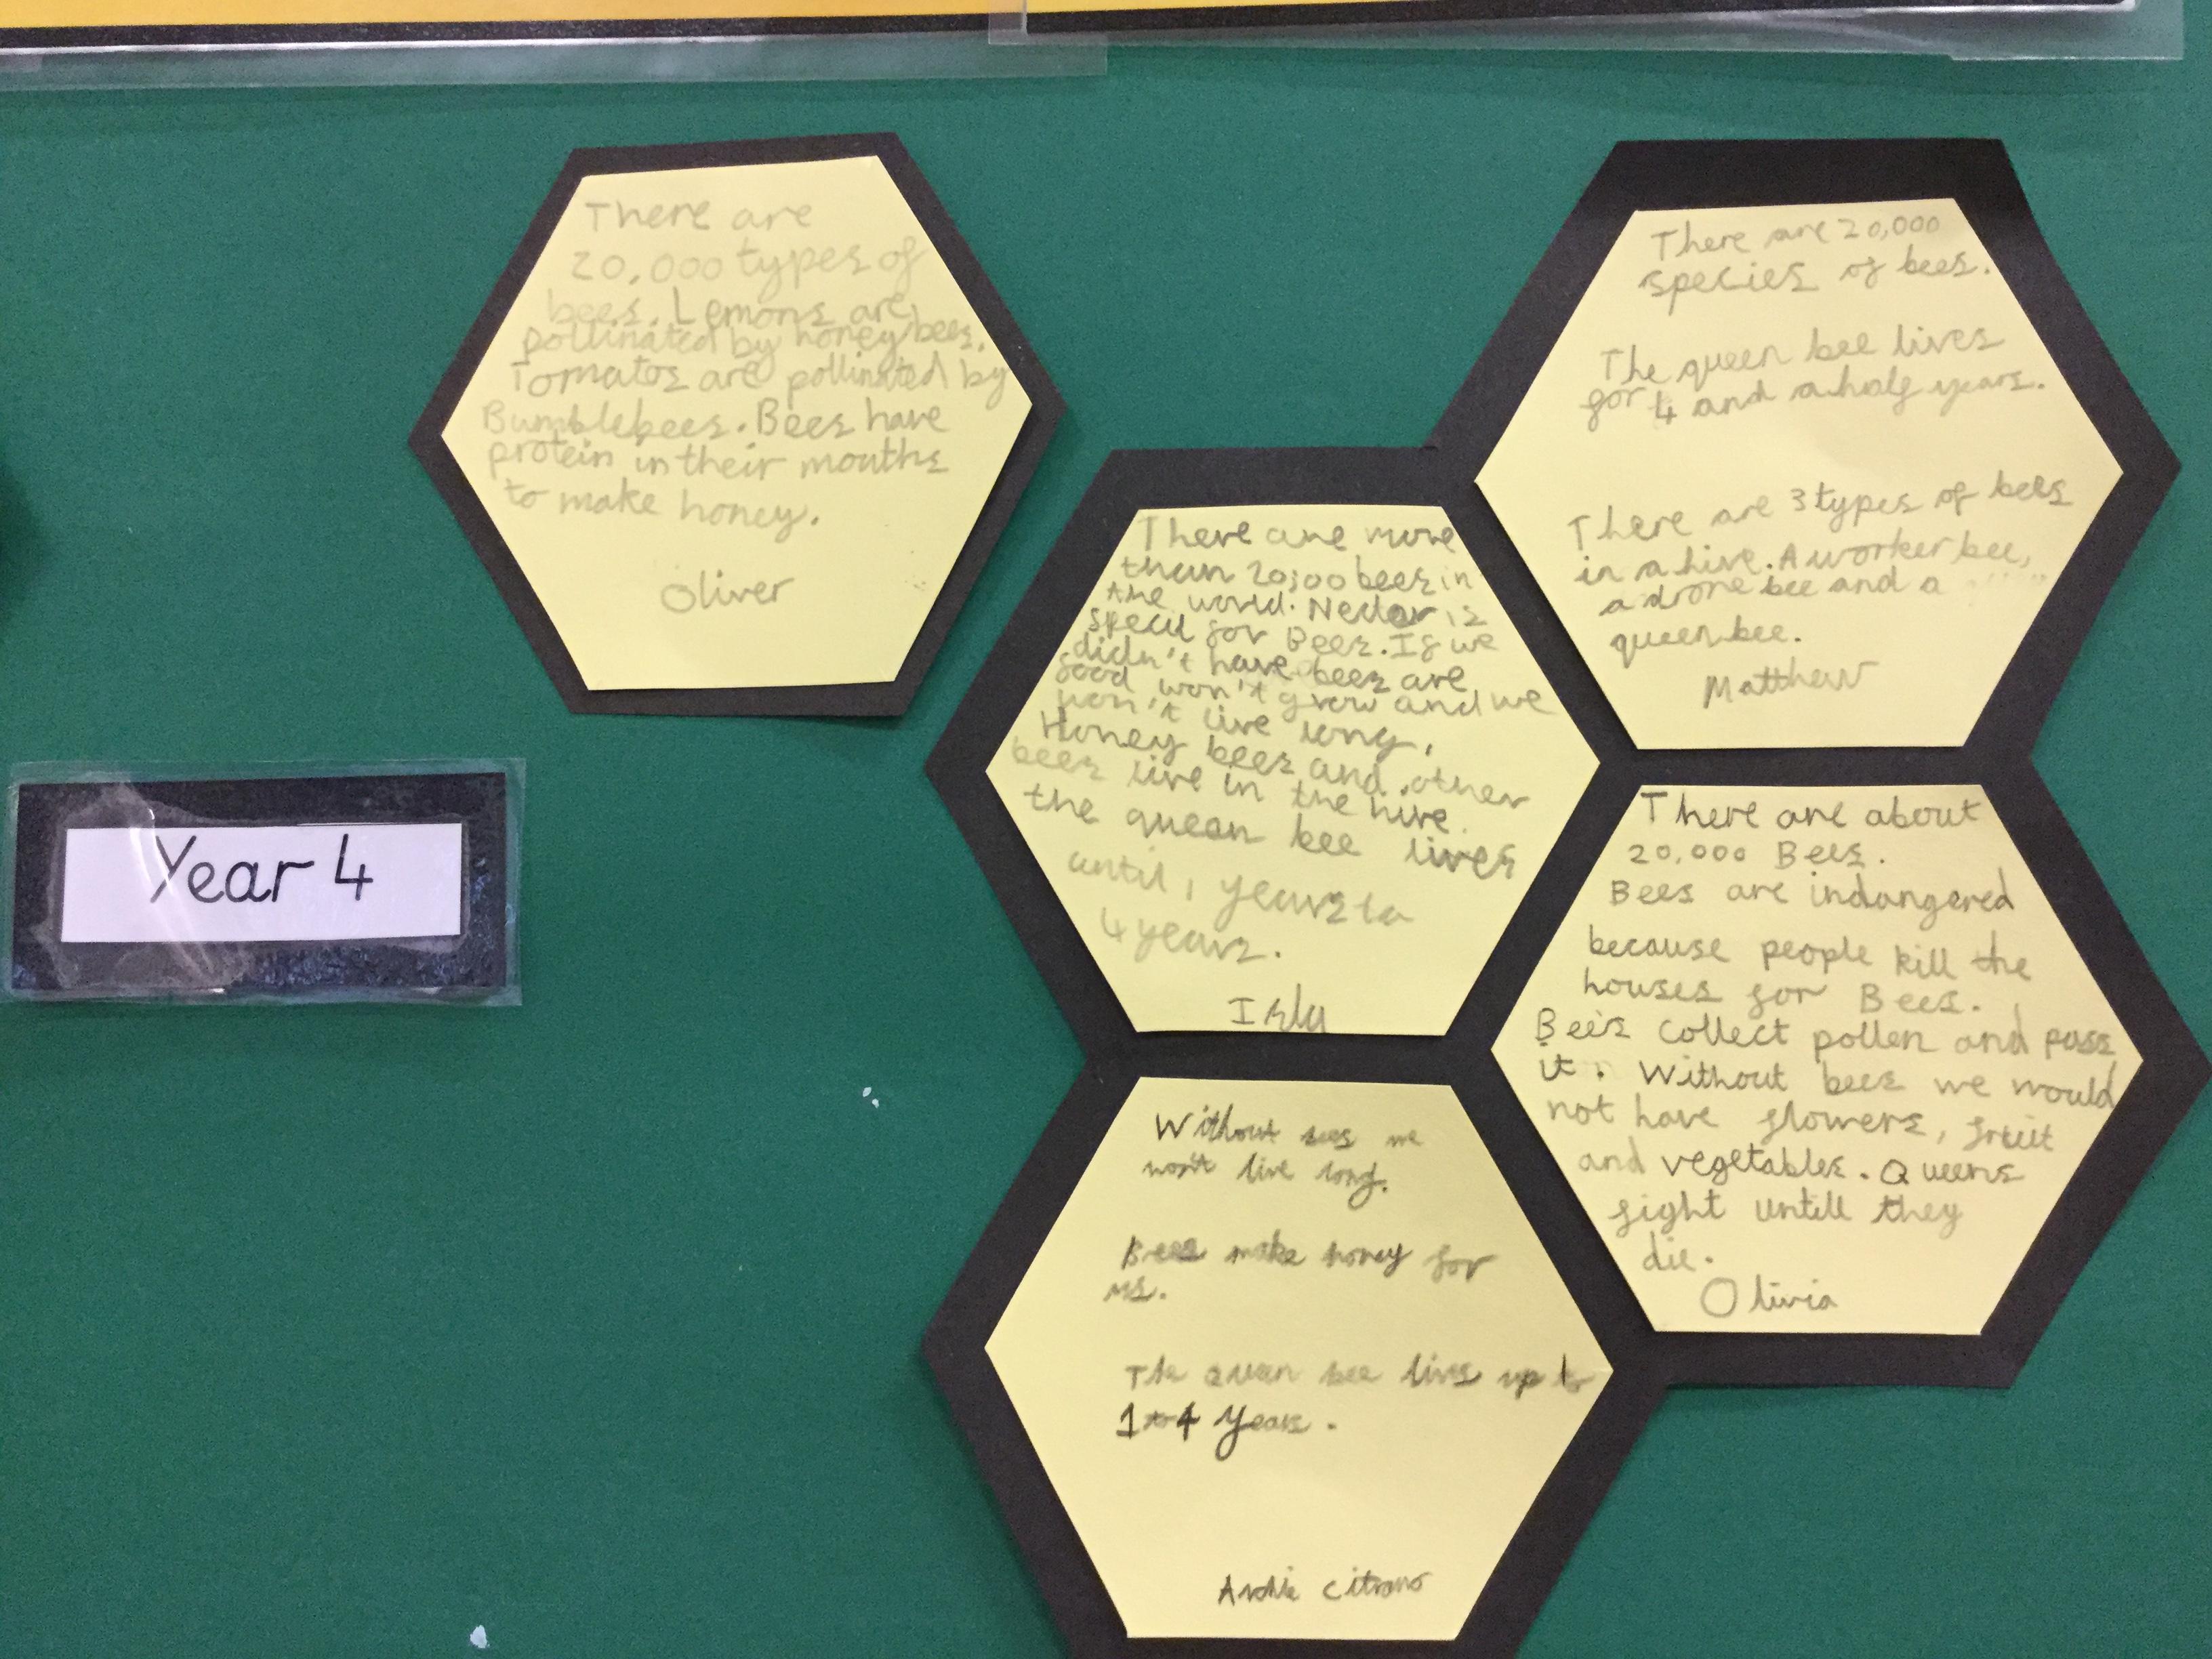 There are
20,000 types of
bees. Lemons are
pollinated by honey bees.
Tomatos are pollinated by
Bumblebees. Bees have
protein in their mouths
to make honey.
Oliver
There are 20,000
species of bees.
The queen bee lives
for 4 and a half years.
There are 3 types of bees
in a hive. A worker bee,
a drone bee and a
queen bee.
Matthew
There are more
than 20,00 bees in
the world. Nectar is
for Bees. If we
didn't have bees are
food won't grow and we
won't live long.
Honey bees and other
bees live in the hive.
the queen bee lives
until 1 years to
4 years.
Isla
Year 4
There are about
20,000 Bees.
Bees are indangered
because people kill the
houses for Bees.
Bees collect pollen and pass
it. Without bees we would
not have flowers, fruit
and vegetables. Queens
fight untill they
die.
Olivia
Without bees we
won't live long.
Bees make honey for
us.
The queen bee lives up to
1 to 4 years.